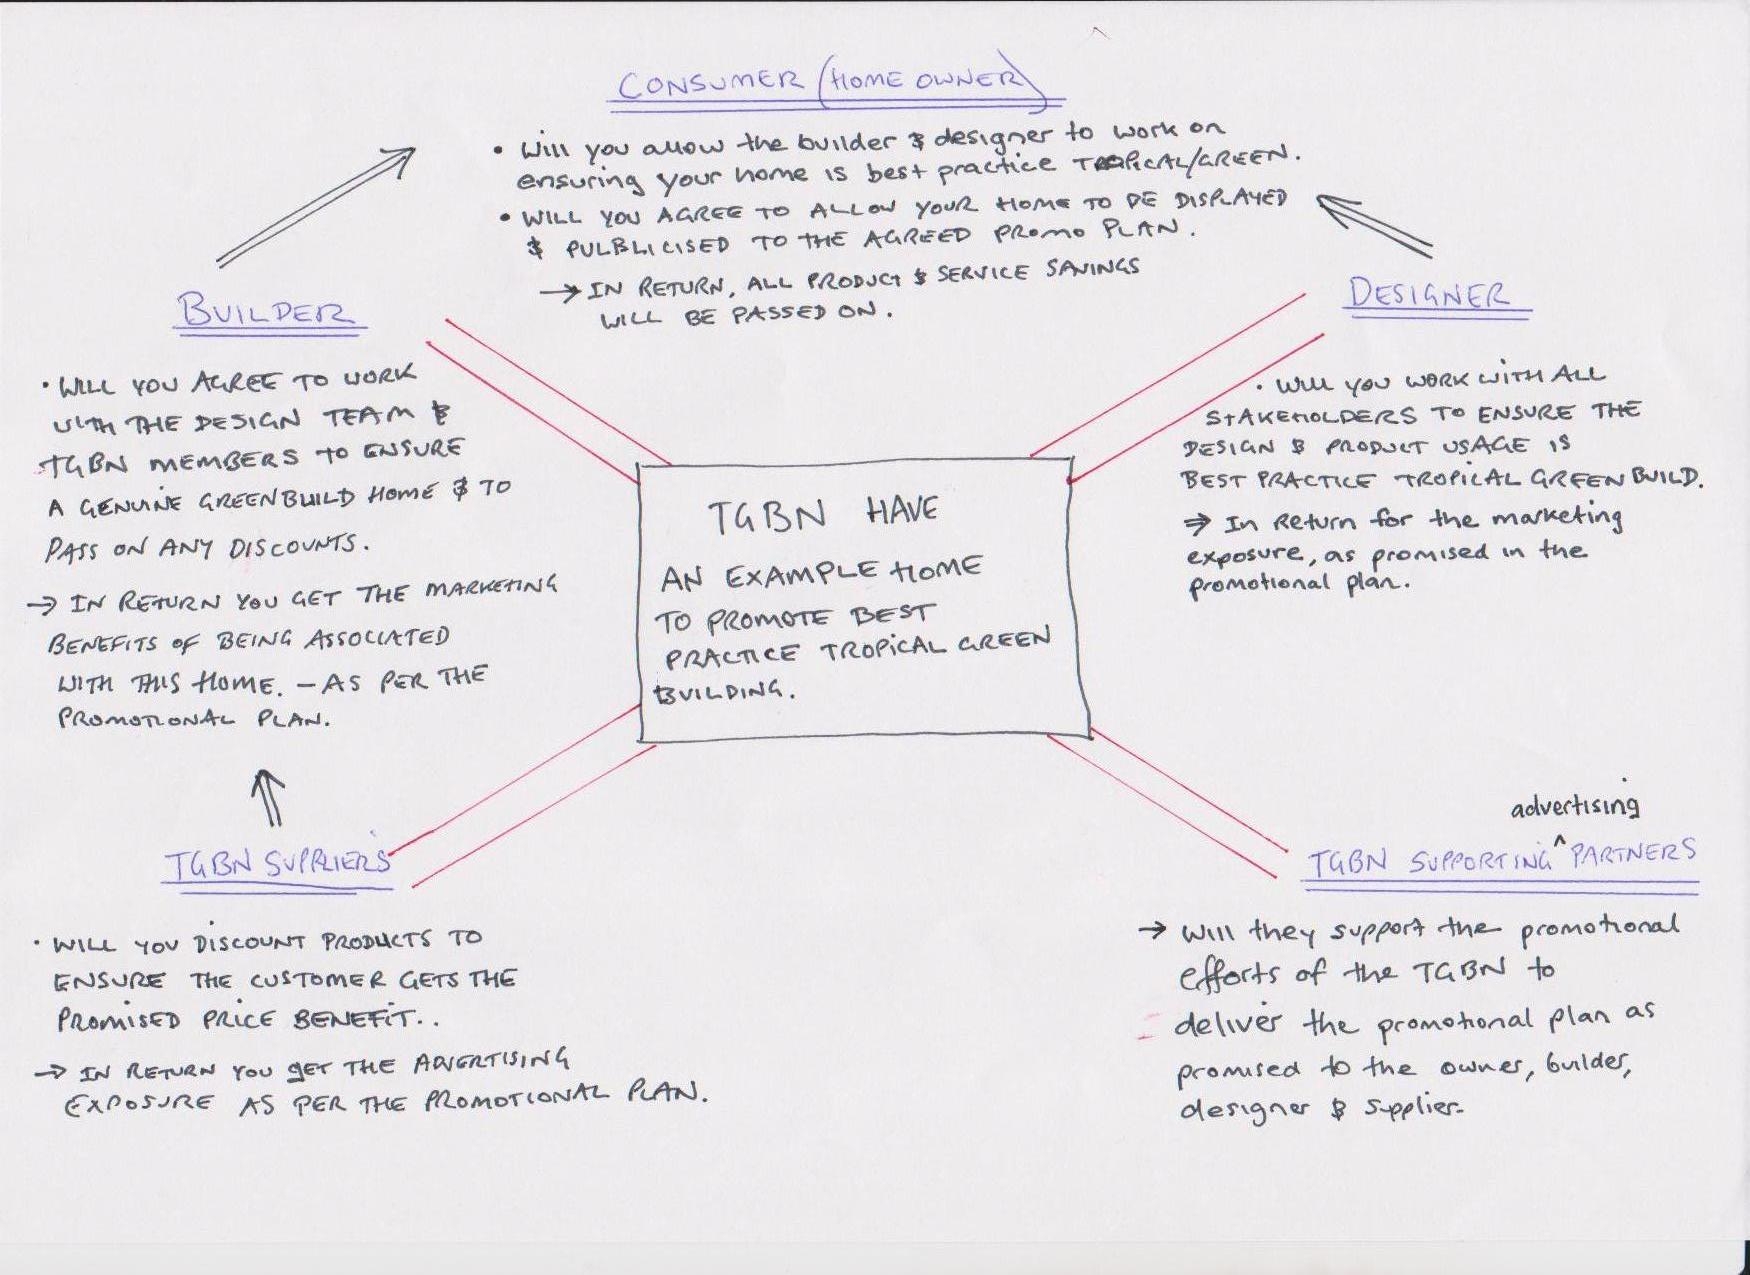 CONSUMER (HOME OWNER)
• Will you allow the builder & designer to work on
ensuring your home is best practice TROPICAL/GREEN.
• WILL YOU AGREE TO ALLOW YOUR HOME TO BE DISPLAYED
& PULBLICISED TO THE AGREED PROMO PLAN.
→ IN RETURN, ALL PRODUCT & SERVICE SAVINGS
WILL BE PASSED ON.
BUILDER
• WILL YOU AGREE TO WORK
WITH THE DESIGN TEAM &
TGBN MEMBERS TO ENSURE
A GENUINE GREENBUILD HOME & TO
PASS ON ANY DISCOUNTS.
→ IN RETURN YOU GET THE MARKETING
BENEFITS OF BEING ASSOCIATED
WITH THIS HOME. – AS PER THE
PROMOTIONAL PLAN.
DESIGNER
• WILL YOU WORK WITH ALL
STAKEHOLDERS TO ENSURE THE
DESIGN & PRODUCT USAGE IS
BEST PRACTICE TROPICAL GREEN BUILD.
⇒ In Return for the marketing
exposure, as promised in the
promotional plan.
TGBN HAVE
AN EXAMPLE HOME
TO PROMOTE BEST
PRACTICE TROPICAL GREEN
BUILDING.
TGBN SUPPLIERS
• WILL YOU DISCOUNT PRODUCTS TO
ENSURE THE CUSTOMER GETS THE
PROMISED PRICE BENEFIT..
→ IN RETURN YOU GET THE ADVERTISING
EXPOSURE AS PER THE PROMOTIONAL PLAN.
advertising
TGBN SUPPORTING ^ PARTNERS
→ Will they support the promotional
efforts of the TGBN to
deliver the promotional plan as
promised to the owner, builder,
designer & supplier.